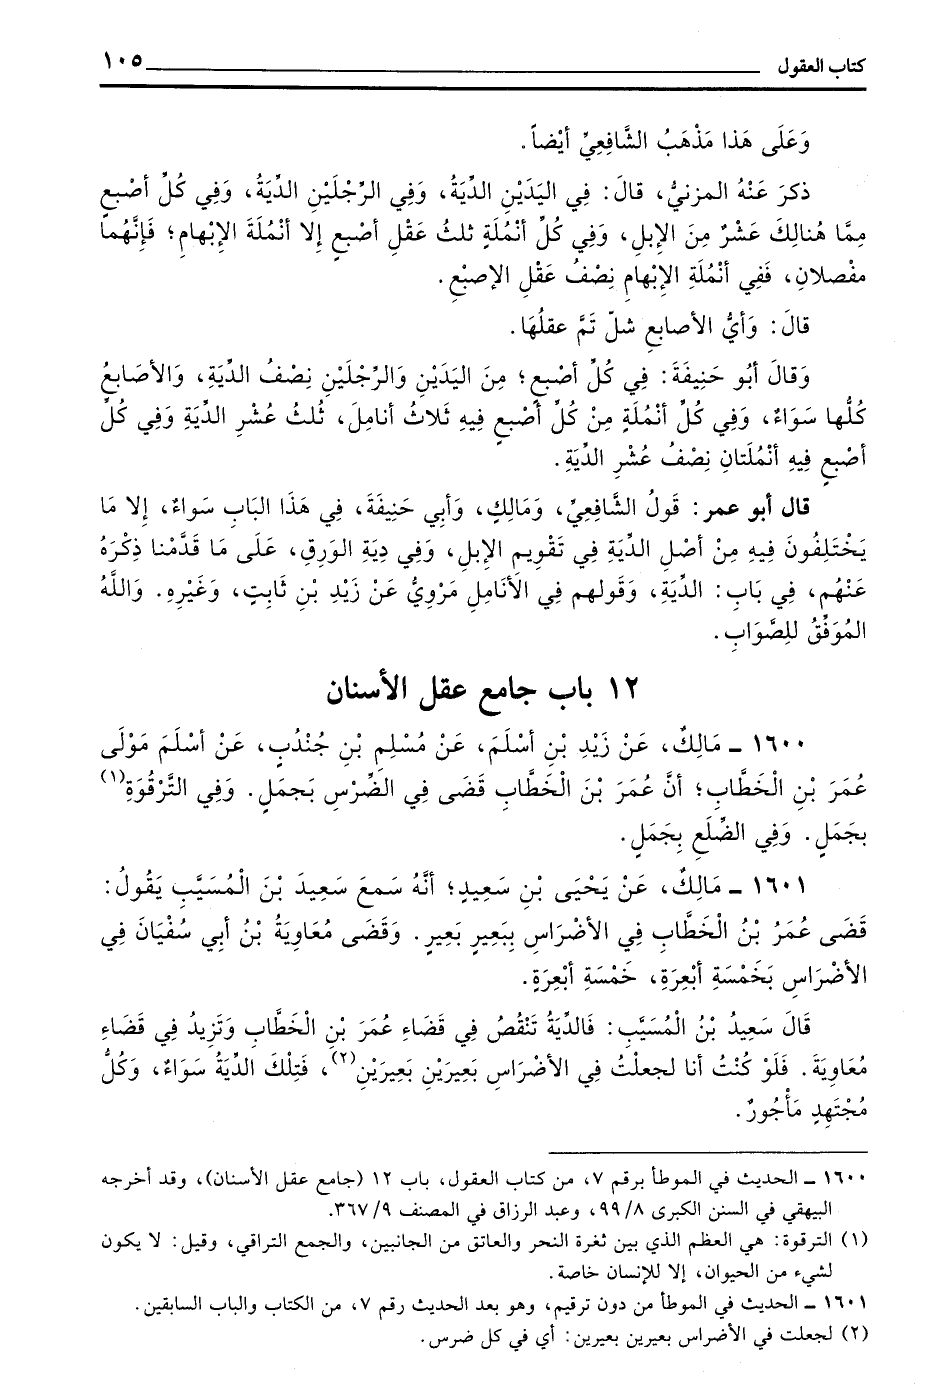 كتاب العقول ١٠٥
وَعَلَى هَذا مَذْهَبُ الشَّافِعِيِّ أيْضاً.
ذكرَ عَنْهُ المزنيُّ، قالَ: فِي اليَدَيْنِ الدِّيَةُ، وَفِي الرِّجْلَيْنِ الدِّيَةُ، وَفِي كُلِّ أصْبعٍ
مِمَّا هُنالِكَ عَشْرٌ مِنَ الإبلِ، وَفِي كُلِّ أنْمُلَةٍ ثلثُ عَقْلِ أصْبعٍ إلا أنْمُلَةَ الإبْهامِ؛ فَإنَّهُما
مفْصلانِ، فَفِي أنْمُلَةِ الإبْهامِ نِصْفُ عَقْلِ الإصبْعِ.
قالَ: وَأيُّ الأصابعِ شلّ تَمَّ عقلُهَا.
وَقالَ أبُو حَنِيفَةَ: فِي كُلِّ أصْبعٍ؛ مِنَ اليَدَيْنِ وَالرِّجْلَيْنِ نِصْفُ الدِّيَةِ، وَالأصَابعُ
كُلُّها سَوَاءٌ، وَفِي كُلِّ أنْمُلَةٍ مِنْ كُلِّ أصْبعٍ فِيهِ ثَلاثُ أنامِلَ، ثُلثُ عُشْرِ الدِّيَةِ وَفِي كُلِّ
أصْبعٍ فِيهِ أنْمُلَتانِ نِصْفُ عُشْرِ الدِّيَةِ.
قال أبو عمر: قَولُ الشَّافِعِيِّ، وَمَالِكٍ، وَأبِي حَنِيفَةَ، فِي هَذَا البَابِ سَواءٌ، إلا مَا
يَخْتَلِفُونَ فِيهِ مِنْ أصْلِ الدِّيَةِ فِي تَقْويمِ الإبلِ، وَفِي دِيَةِ الوَرِقِ، عَلَى مَا قَدَّمْنا ذِكْرَهُ
عَنْهُم، فِي بَابِ: الدِّيَةِ، وَقَولهم فِي الأَنَامِلِ مَرْوِيٌّ عَنْ زَيْدِ بْنِ ثَابتٍ، وَغَيْرِهِ. وَاللَّهُ
المُوَفِّقُ لِلصَّوَابِ.
١٢ باب جامع عقل الأسنان
١٦٠٠ ـ مَالِكٌ، عَنْ زَيْدِ بْنِ أسْلَمَ، عَنْ مُسْلِمِ بْنِ جُنْدُبٍ، عَنْ أسْلَمَ مَوْلَى
عُمَرَ بْنِ الْخَطَّابِ؛ أنَّ عُمَرَ بْنَ الْخَطَّابِ قَضَى فِي الضِّرْسِ بَجمَلٍ. وَفِي التَّرْقُوَةِ(١)
بجَمَلٍ. وَفِي الضِّلَعِ بِجَمَلٍ.
١٦٠١ ـ مَالِكٌ، عَنْ يَحْيَى بْنِ سَعِيدٍ؛ أنَّهُ سَمعَ سَعِيدَ بْنَ الْمُسَيَّبِ يَقُولُ:
قَضَى عُمَرُ بْنُ الْخَطَّابِ فِي الأضْرَاسِ بِبَعِيرٍ بَعِيرٍ. وَقَضَى مُعَاوِيَةُ بْنُ أبي سُفْيَانَ فِي
الأضْرَاسِ بَخَمْسَةِ أبْعِرَةٍ، خَمْسَةِ أبْعِرَةٍ.
قَالَ سَعِيدُ بْنُ الْمُسَيَّبِ: فَالدِّيَةُ تَنْقُصُ فِي قَضَاءِ عُمَرَ بْنِ الْخَطَّابِ وَتَزِيدُ فِي قَضَاءِ
مُعَاوِيَةَ. فَلَوْ كُنْتُ أنا لجعلْتُ فِي الأضْرَاسِ بَعِيرَيْنِ بَعِيرَيْنِ(٢)، فَتِلْكَ الدِّيَةُ سَوَاءٌ، وَكُلُّ
مُجْتَهِدٍ مَأجُورٌ.
١٦٠٠ ـ الحديث في الموطأ برقم ٧، من كتاب العقول، باب ١٢ (جامع عقل الأسنان)، وقد أخرجه
البيهقي في السنن الكبرى ٨/ ٩٩، وعبد الرزاق في المصنف ٩/ ٣٦٧.
(١) الترقوة: هي العظم الذي بين ثغرة النحر والعاتق من الجانبين، والجمع التراقي، وقيل: لا يكون
لشيء من الحيوان، إلا للإنسان خاصة.
١٦٠١ ـ الحديث في الموطأ من دون ترقيم، وهو بعد الحديث رقم ٧، من الكتاب والباب السابقين.
(٢) لجعلت في الأضراس بعيرين بعيرين: أي في كل ضرس.